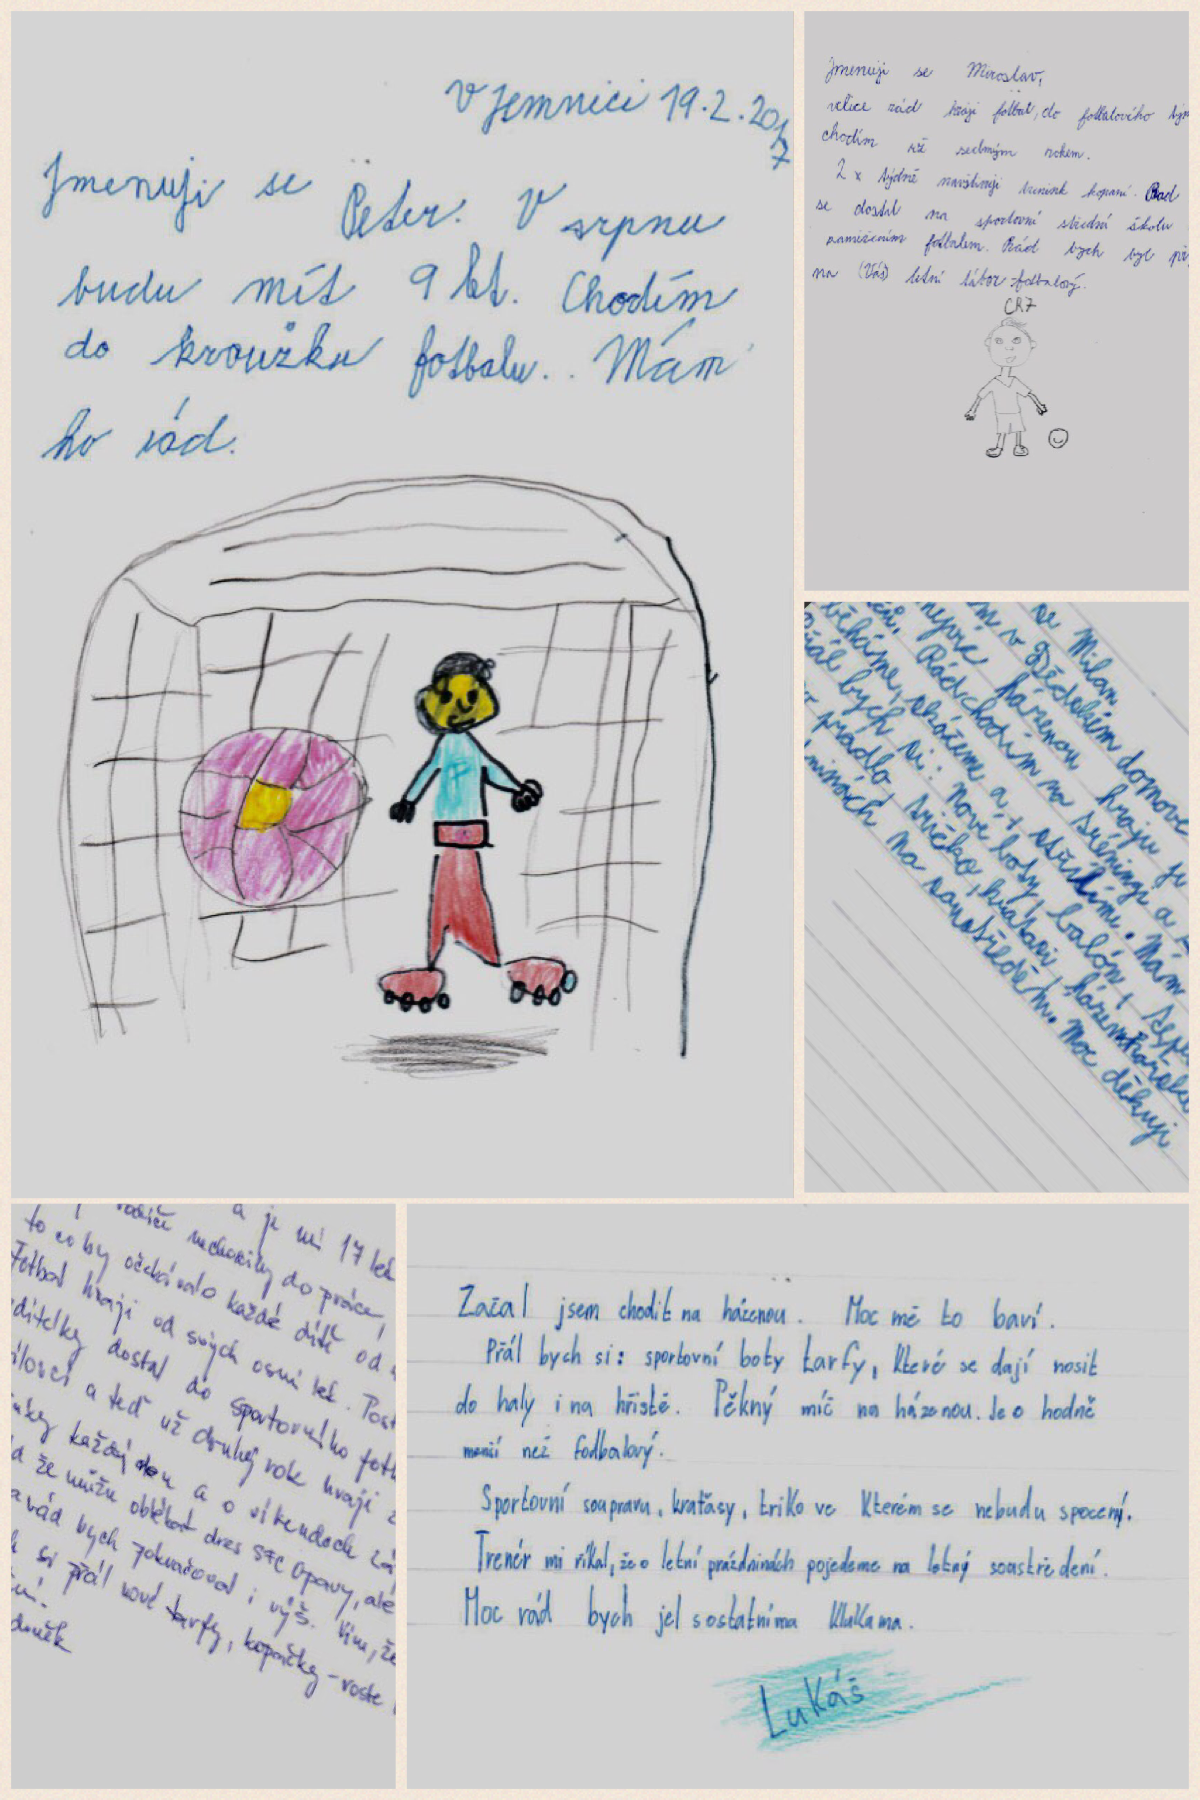 V Jemnici 19.2.2017
Jmenuji se Peter. V srpnu
budu mít 9 let. Chodím
do kroužku fotbalu.. Mám
ho rád.
Jmenuji se Miroslav,
velice rád hraji fotbal, do fotbalového
chodím už sedmým rokem.
2 x týdně navštěvuji trenink kopaní. Rád
se dostal na sportovní střední školu
zaměřením fotbalem. Rád bych byl
na (Váš) letní tábor-fotbalový.
CR7
se Milan
m v Dědském domově
nejvíc házenou hraju
Rád chodím na tréningi a
běháme, skáčeme a střílíme. Mám
Přál bych si: nové boty, balón,
prádlo, tričko, kraťasi
na soustředění. Moc děkuji
a je mi 17 let
rodiče nechodily do práce,
to co by očekávalo každé dítě od
Fotbal hraji od svých osmi let.
ditelky dostal do sportovního
a teď už druhý rok hraji z
každý den a o víkendech
že můžu obléknout dres SFC Opavy, ale
rád bych pokračoval i výš. Vím, že
si přál nové turfy, kopačky - roste
Začal jsem chodit na házenou. Moc mě to baví.
Přál bych si: sportovní boty tarfy, které se dají nosit
do haly i na hřistě. Pěkný míč na házenou. Je o hodně
menší než fodbalový.
Sportovní soupravu, kraťasy, triko ve kterém se nebudu spocený.
Trenér mi říkal, že o letní prázdninách pojedeme na letný soustředení.
Moc rád bych jel s ostatníma klukama.
Lukáš